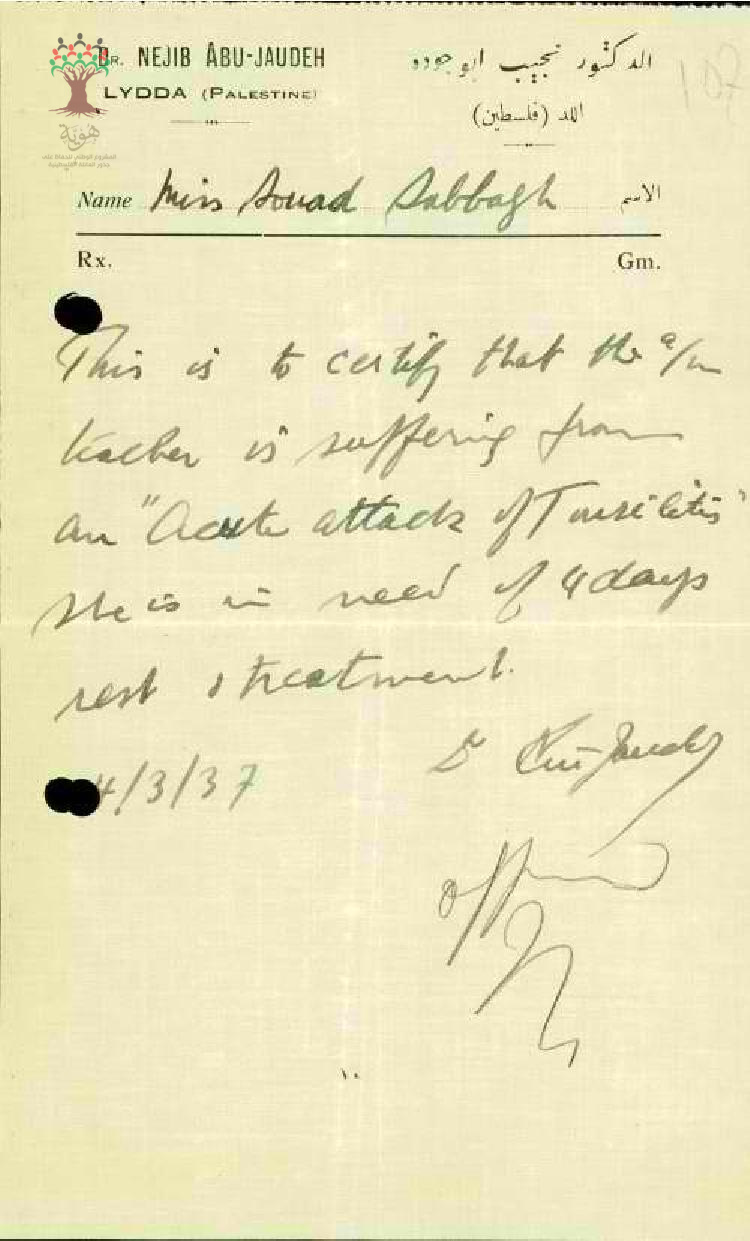 DR. NEJIB ABU-JAUDEH
LYDDA (PALESTINE)
الدكتور نجيب ابو جوده
اللد (فلسطين)
107
هُويّة
Name Miss Souad Sabbagh الاسم
Rx. Gm.
This is to certify that the a/m
teacher is suffering from
an "Acute attack of Tonsilitis"
She is in need of 4 days
rest & treatment.
Dr Abu-Jaudeh
4/3/37
١٠